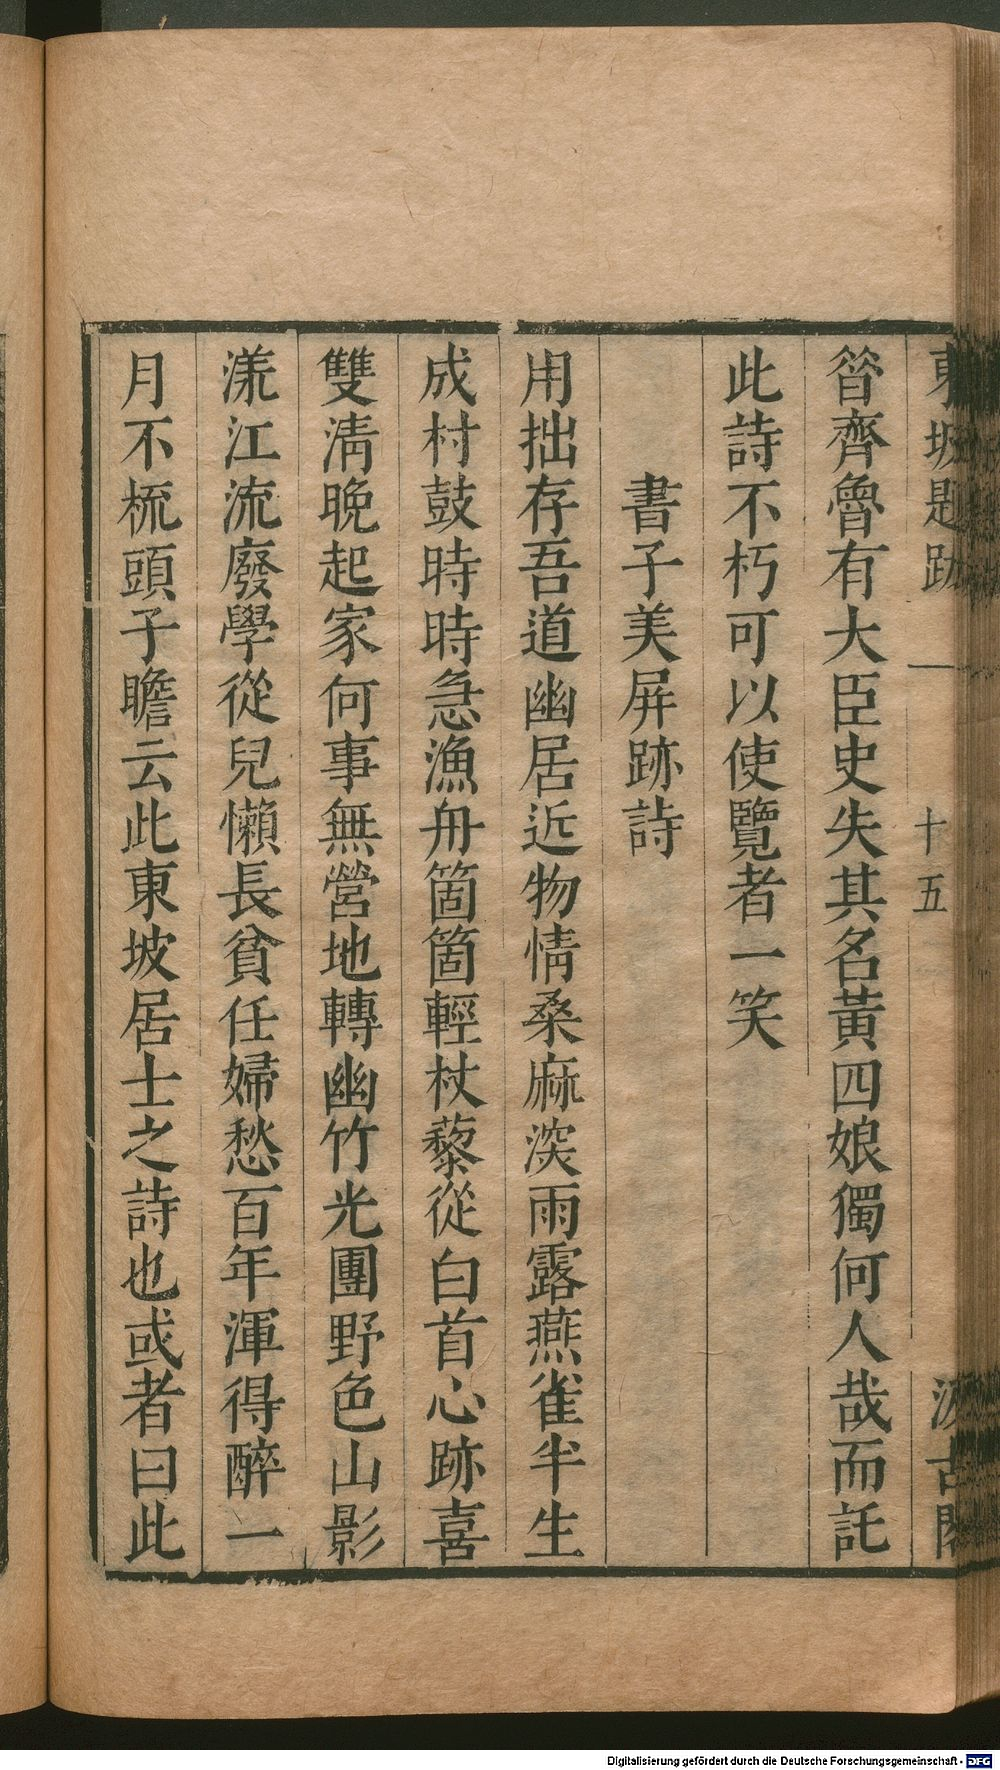 東坡題跋 一 十五 汲古閣
昝齊魯有大臣史失其名黃四娘獨何人哉而託
此詩不朽可以使覽者一笑
書子美屏跡詩
用拙存吾道幽居近物情桑麻深雨露燕雀半生
成村鼓時時急漁舟箇箇輕杖藜從白首心跡喜
雙淸晚起家何事無營地轉幽竹光團野色山影
漾江流廢學從兒懶長貧任婦愁百年渾得醉一
月不梳頭子瞻云此東坡居士之詩也或者曰此
Digitalisierung gefördert durch die Deutsche Forschungsgemeinschaft - DFG